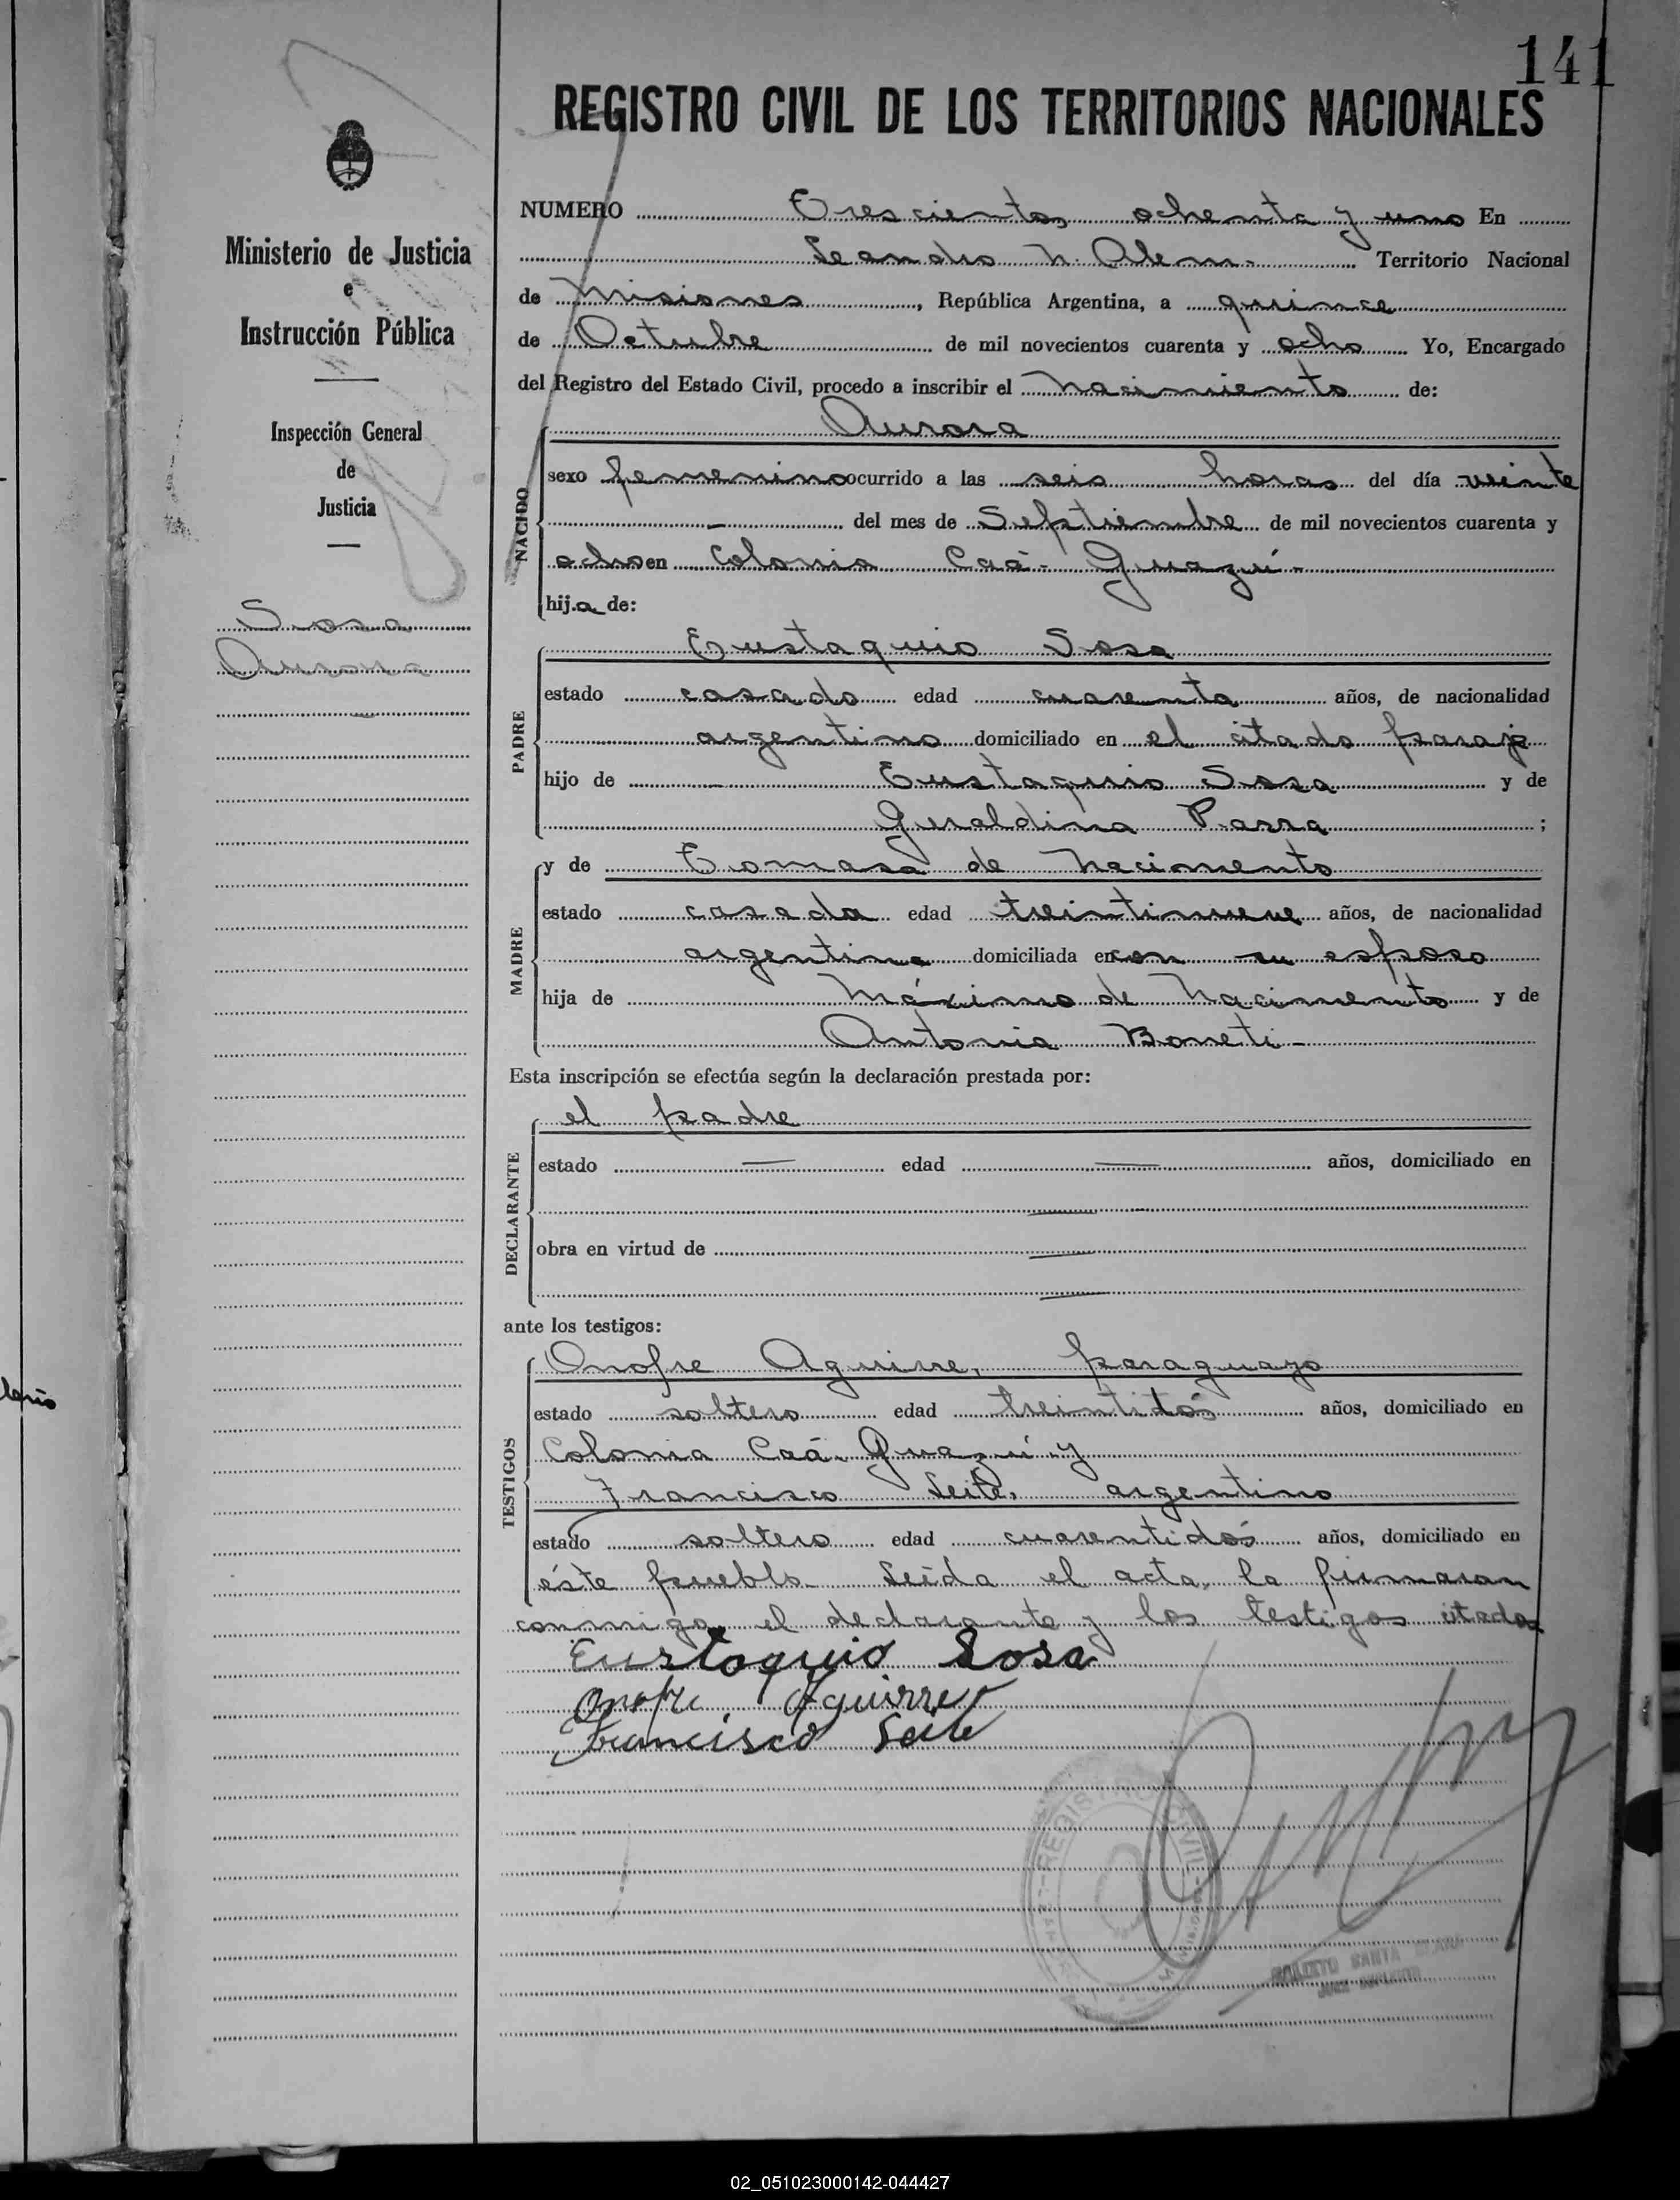 141
REGISTRO CIVIL DE LOS TERRITORIOS NACIONALES
Ministerio de Justicia
e
Instrucción Pública
Inspección General
de
Justicia
Sosa
Aurora
NUMERO Trescientos ochenta y uno En
Leandro N. Alem. Territorio Nacional
de Misiones, República Argentina, a quince
de Octubre de mil novecientos cuarenta y ocho Yo, Encargado
del Registro del Estado Civil, procedo a inscribir el nacimiento de:
NACIDO
Aurora
sexo femenino ocurrido a las seis horas del día veinte
- del mes de Septiembre de mil novecientos cuarenta y
ocho en Colonia Caá-Guazú-
hij.a de:
PADRE
Eustaquio Sosa
estado casado edad cuarenta años, de nacionalidad
argentino domiciliado en el citado paraje
hijo de Eustaquio Sosa y de
Geraldina Parra ;
MADRE
y de Tomasa de Nacimento
estado casada edad treintinueve años, de nacionalidad
argentina domiciliada en con su esposo
hija de Máximo de Nacimento y de
Antonia Boneti-
Esta inscripción se efectúa según la declaración prestada por:
DECLARANTE
el padre
estado — edad — años, domiciliado en
—
obra en virtud de —
—
ante los testigos:
TESTIGOS
Onofre Aguirre, paraguayo
estado soltero edad treintidós años, domiciliado en
Colonia Caá-Guazú y
Francisco Leite, argentino
estado soltero edad cuarentidós años, domiciliado en
éste pueblo. Leída el acta, la firmaron
conmigo el declarante y los testigos citados
Eustaquio Sosa
Onofre Aguirre
Francisco Leite
REGISTRO CIVIL
SANTA
02_051023000142-044427